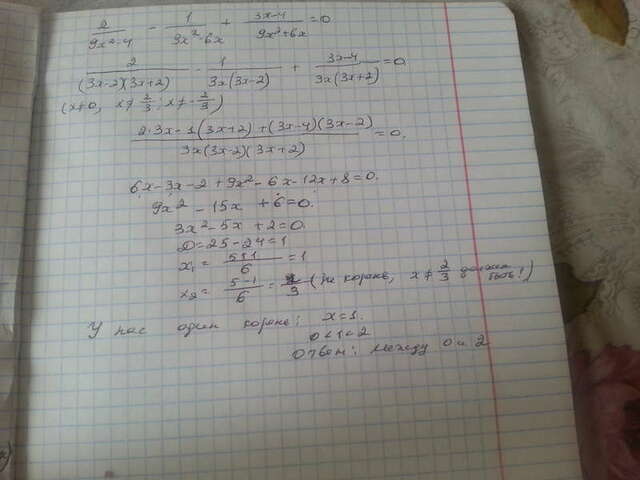 2/(9x²-4) - 1/(9x²-6x) + (3x-4)/(9x²+6x) = 0
2/((3x-2)(3x+2)) - 1/(3x(3x-2)) + (3x-4)/(3x(3x+2)) = 0
(x≠0, x≠2/3; x≠-2/3)
(2·3x-1(3x+2)+(3x-4)(3x-2))/(3x(3x-2)(3x+2)) = 0.
6x-3x-2+9x²-6x-12x+8=0.
9x²-15x+6=0.
3x²-5x+2=0.
D=25-24=1
x₁=(5+1)/6=1
x₂=(5-1)/6=2/3 (не корень, x≠2/3 должен быть!)
У нас один корень: x=1.
0<1<2
Ответ: между 0 и 2